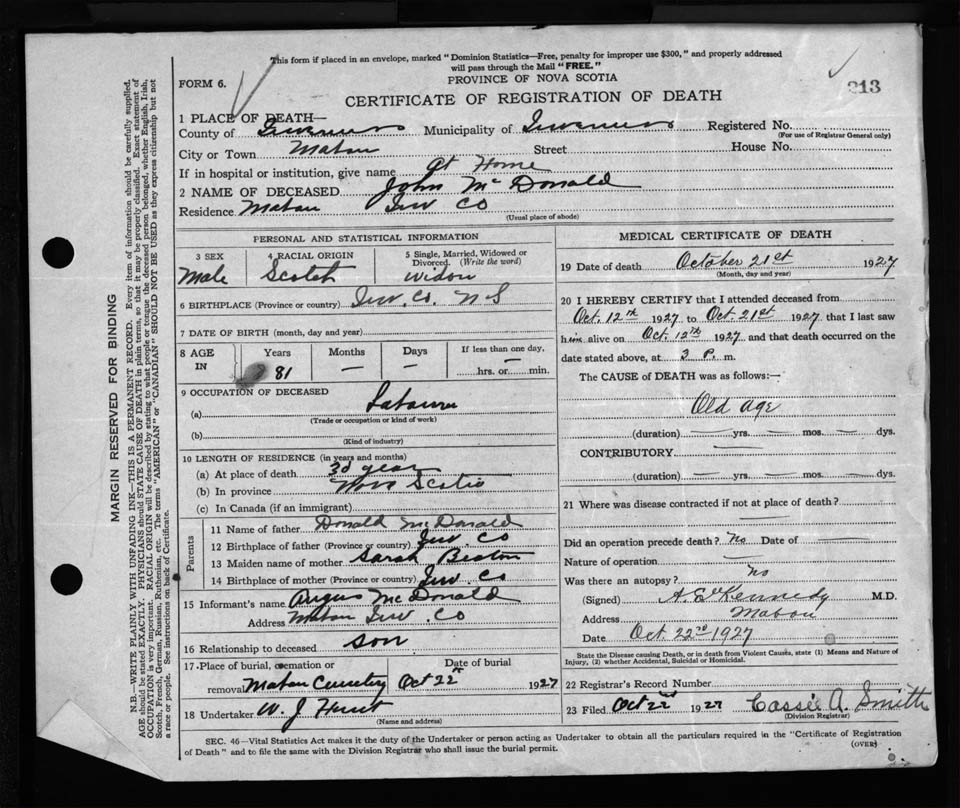 This form if placed in an envelope, marked "Dominion Statistics—Free, penalty for improper use $300," and properly addressed
will pass through the Mail "FREE."
FORM 6.
PROVINCE OF NOVA SCOTIA
213
CERTIFICATE OF REGISTRATION OF DEATH
1 PLACE OF DEATH—
County of Inverness Municipality of Inverness Registered No.
(For use of Registrar General only)
City or Town Mabou Street House No.
If in hospital or institution, give name At Home
2 NAME OF DECEASED John McDonald
Residence Mabou Inv Co
(Usual place of abode)
PERSONAL AND STATISTICAL INFORMATION
3 SEX Male
4 RACIAL ORIGIN Scotch
5 Single, Married, Widowed or Divorced. (Write the word) Widow
6 BIRTHPLACE (Province or country) Inv. Co. N S
7 DATE OF BIRTH (month, day and year)
8 AGE IN Years 81 Months — Days — If less than one day, — hrs. or min.
9 OCCUPATION OF DECEASED
(a) Labourer
(Trade or occupation or kind of work)
(b)
(Kind of industry)
10 LENGTH OF RESIDENCE (in years and months)
(a) At place of death years
(b) In province Nova Scotia
(c) In Canada (if an immigrant)
Parents
11 Name of father Donald McDonald
12 Birthplace of father (Province or country) Inv. Co
13 Maiden name of mother Sarah Beaton
14 Birthplace of mother (Province or country) Inv. Co
15 Informant's name Angus McDonald
Address Mabou Inv. Co
16 Relationship to deceased son
17 Place of burial, cremation or Date of burial
removal Mabou Cemetery Oct 22nd 1927
18 Undertaker W. J. Hunt
(Name and address)
MEDICAL CERTIFICATE OF DEATH
19 Date of death October 21st 1927
(Month, day and year)
20 I HEREBY CERTIFY that I attended deceased from
Oct. 12th 1927 to Oct. 21st 1927 that I last saw
him alive on Oct. 12th 1927 and that death occurred on the
date stated above, at 3 P. m.
The CAUSE OF DEATH was as follows:—
Old age
(duration) — yrs. — mos. — dys.
CONTRIBUTORY
(duration) — yrs. — mos. — dys.
21 Where was disease contracted if not at place of death?
Did an operation precede death? No Date of
Nature of operation
Was there an autopsy? No
(Signed) Kennedy M.D.
Address Mabou
Date Oct. 22nd 1927
State the Disease causing Death, or in death from Violent Causes, state (1) Means and Nature of
Injury, (2) whether Accidental, Suicidal or Homicidal.
22 Registrar's Record Number
23 Filed Oct 22nd 1927 Cassie A. Smith
(Division Registrar)
SEC. 46—Vital Statistics Act makes it the duty of the Undertaker or person acting as Undertaker to obtain all the particulars required in the "Certificate of Registration
of Death" and to file the same with the Division Registrar who shall issue the burial permit.
(OVER)
MARGIN RESERVED FOR BINDING
N.B.—WRITE PLAINLY WITH UNFADING INK—THIS IS A PERMANENT RECORD. Every item of information should be carefully supplied.
AGE should be stated EXACTLY. PHYSICIANS should STATE CAUSE OF DEATH in plain terms, so that it may be properly classified. Exact statement of
OCCUPATION is very important. RACIAL ORIGIN will be described by stating to what people or tongue the deceased person belonged, whether English, Irish,
Scotch, French, German, Russian, Ruthenian, etc. The terms "AMERICAN" or "CANADIAN" SHOULD NOT BE USED as they express citizenship but not
a race or people. See instructions on back of Certificate.